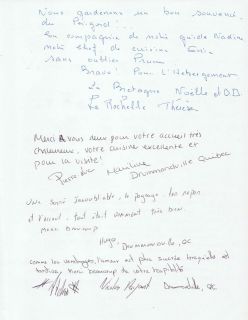 Nous garderons un bon souvenir
du Périgord...
En compagnie de notre guide Nadine
notre chef de cuisine
sans oublier
Bravo! Pour l'Hébergement
La Bretagne Noëlle et D.D.
La Rochelle Thérèse
Merci à vous deux pour votre accueil très
chaleureux, votre cuisine excellente et
pour la visite!
Drummondville Québec
Une soirée Inoubliable, le paysage, les repas
et l'accueil, tout était vraiment très bien.
Merci beaucoup
Hugo, Drummondville, QC
comme les vendanges, l'amour est plus sucrée lorsqu'elle est
tardive, merci beaucoup de votre hospitalité
Drummondville, Qc